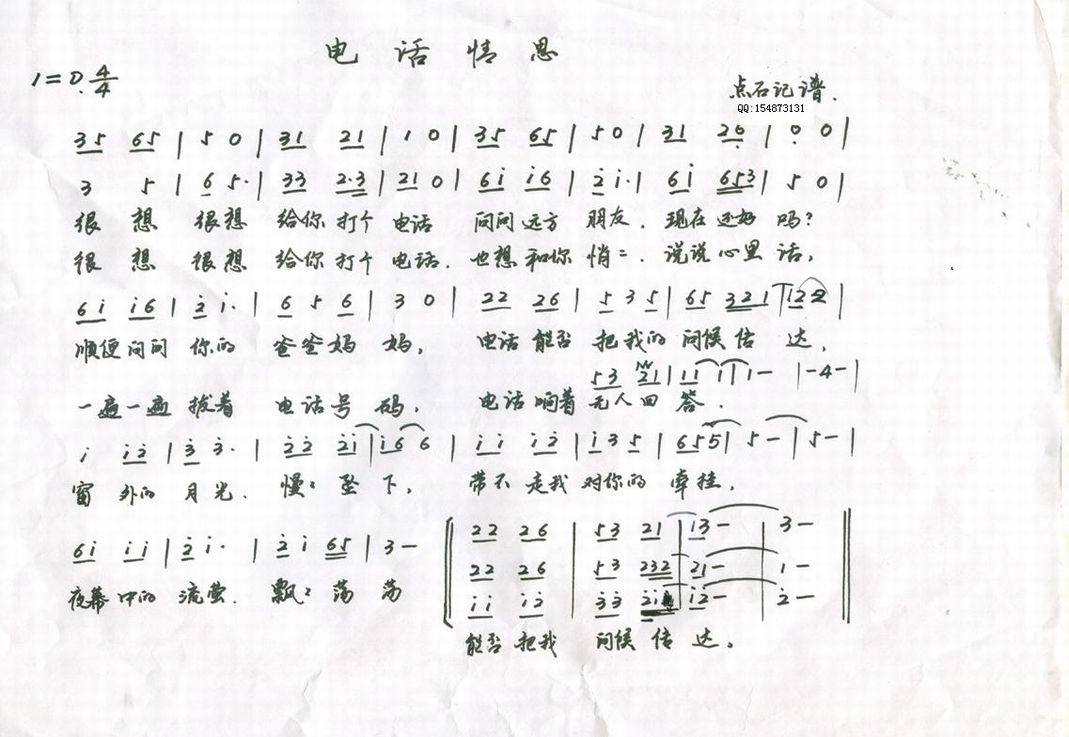 电话情思
1=D 4/4
点石记谱.
QQ:154873131
35 65 | 5 0 | 31 21 | 1 0 | 35 65 | 5 0 | 31 26 | 0 0 |
3 5 | 6 5· | 33 2·3 | 21 0 | 6i i6 | 2 i· | 6i 653 | 5 0 |
很 想 很想 给你 打个 电话 问问 远方 朋友. 现在 还好 吗?
很 想 很想 给你 打个 电话. 也想 和你 悄:. 说说 心里 话,
6i i6 | 2 i· | 6 5 6 | 3 0 | 22 26 | 5 3 5 | 65 321 | 122 |
顺便 问问 你的 爸爸妈 妈, 电话 能否 把我的 问候 传 达,
53 21 | 11 1 | 1- |-4-|
一遍一遍 拨着 电话号 码, 电话 响着 无人回 答.
i i2 | 3 3· | 22 2i | i6 6 | ii i2 | i 3 5 | 655 | 5 - | 5 - |
窗 外的 月光. 慢: 坠 下, 带不 走我 对你的 牵挂.
6i ii | 2 i· | 2 i 65 | 3 -
夜幕 中的 流萤. 飘: 荡 荡
22 26 | 53 21 | 13- | 3 -
22 26 | 53 232 | 21- | 1 -
ii i2 | 33 2i | i2- | 2 -
能否 把我 问候 传 达。